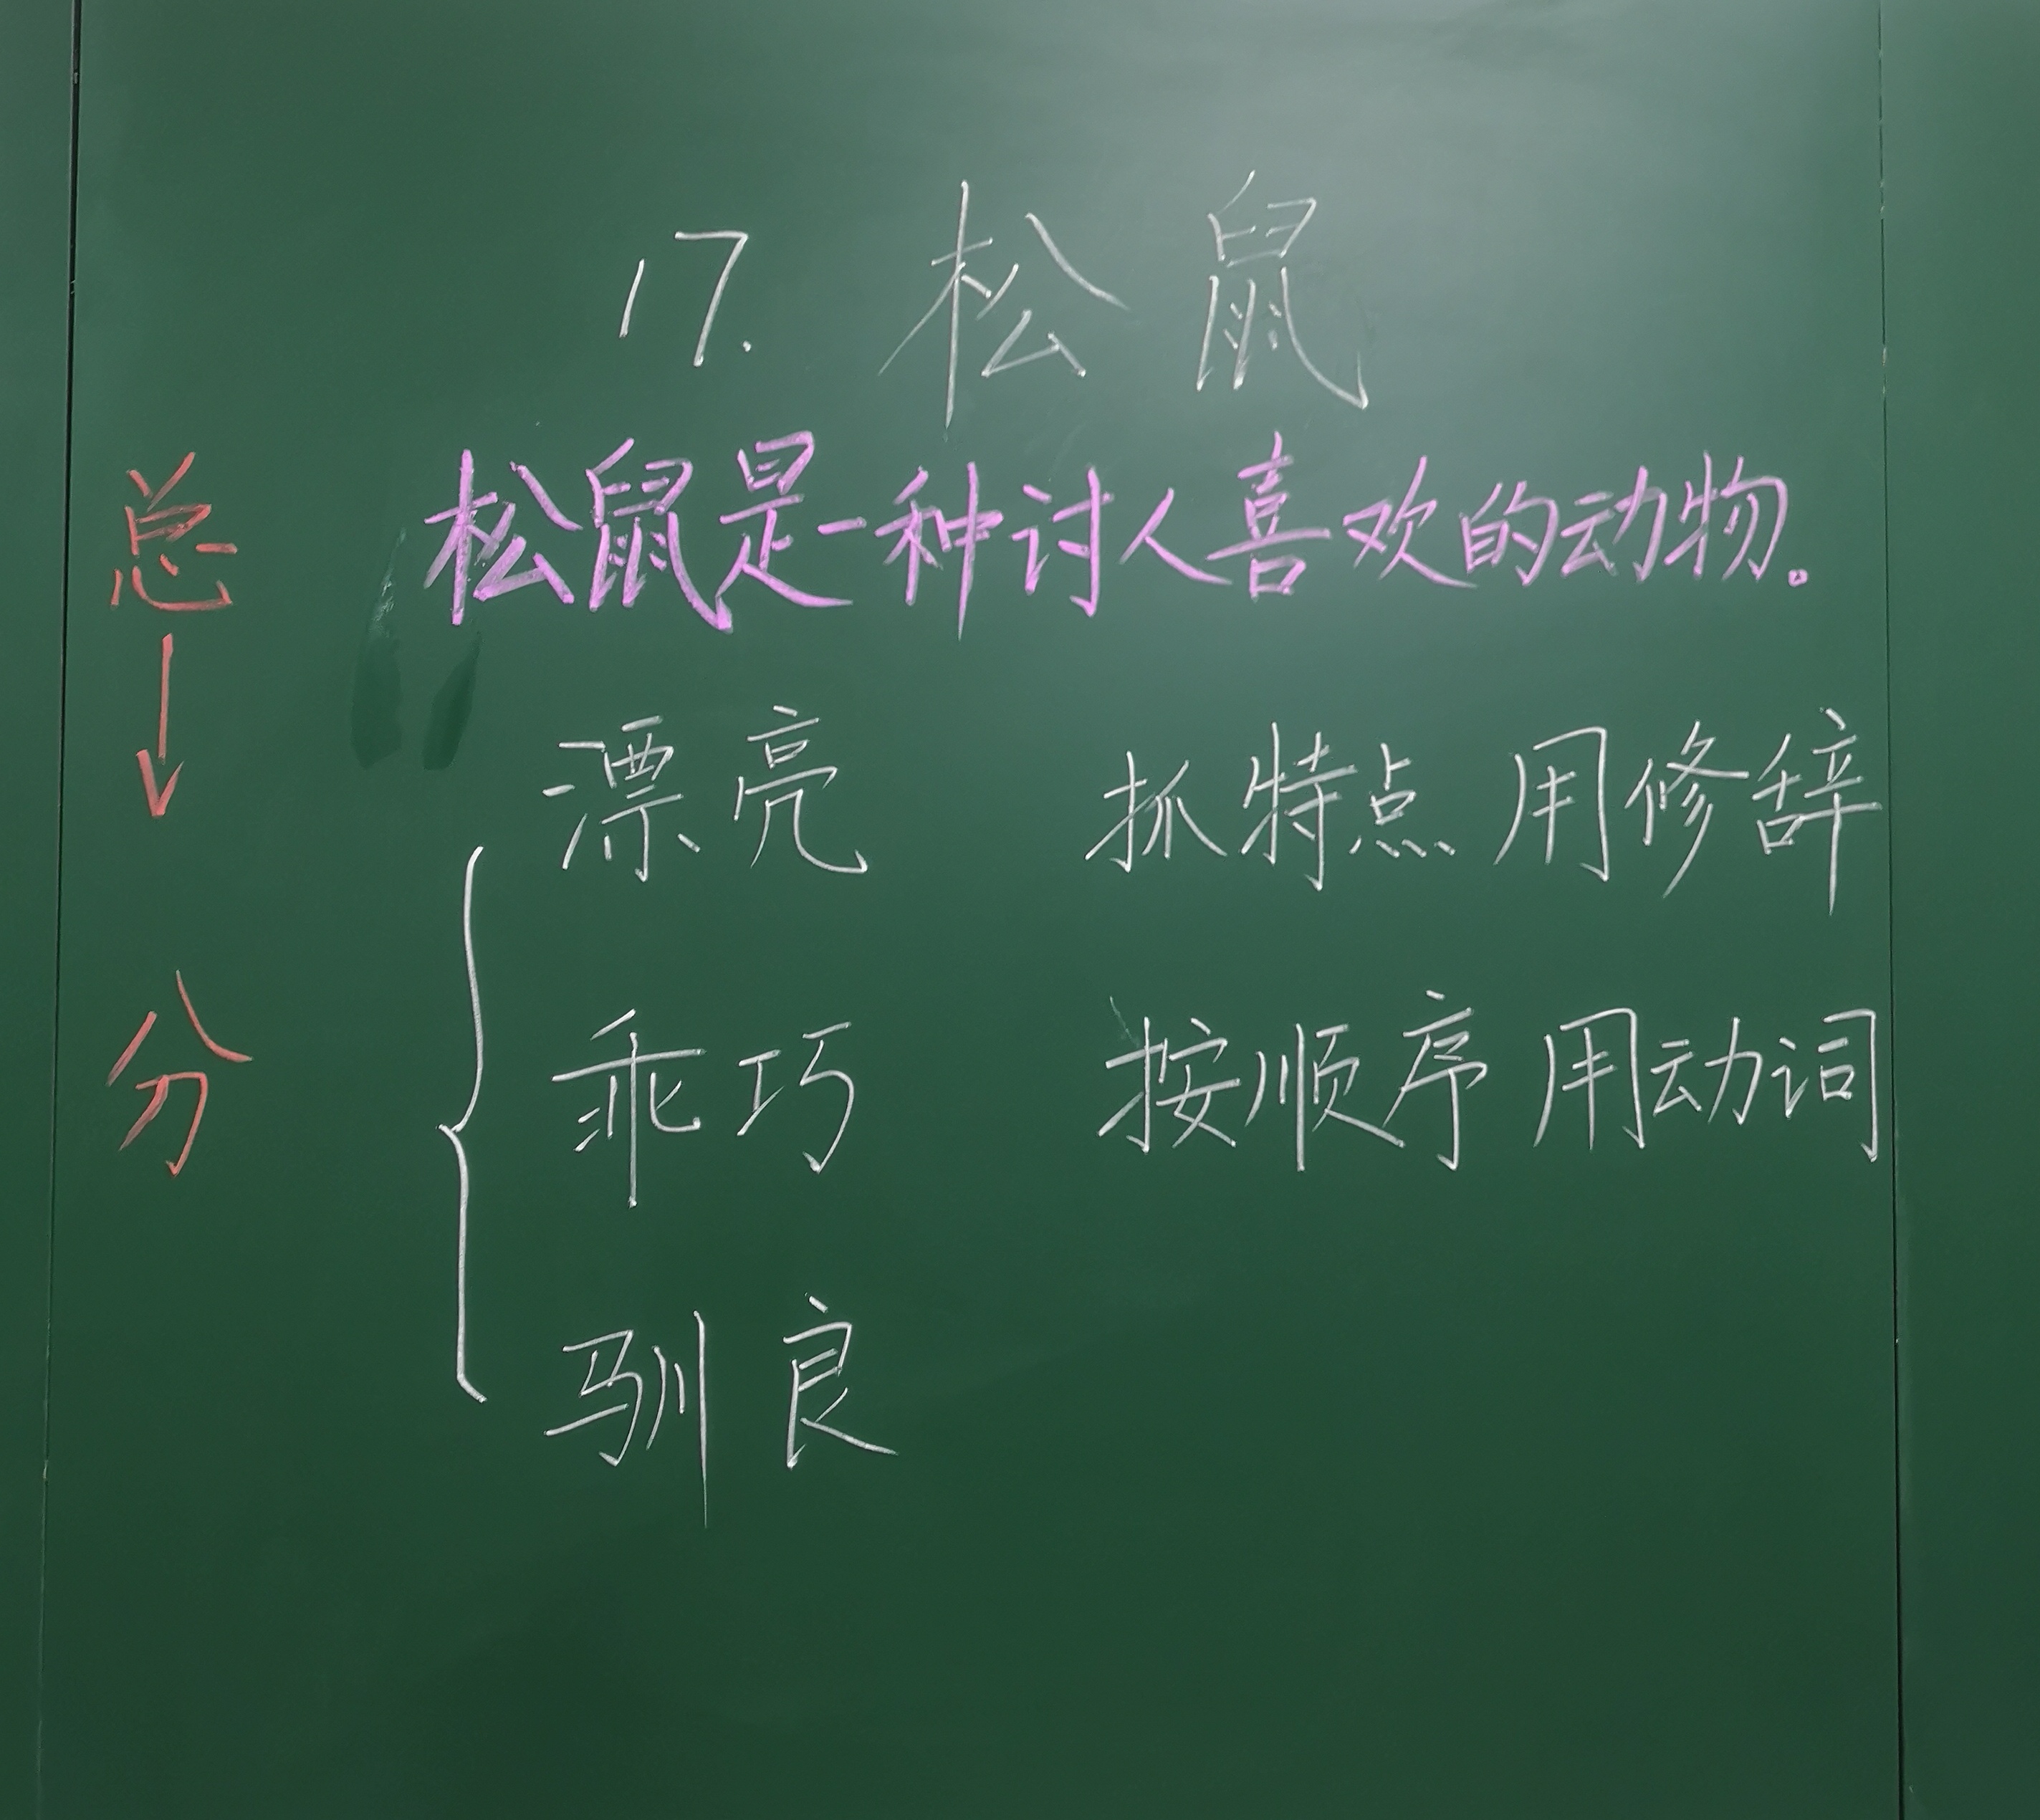 17. 松鼠
总
松鼠是一种讨人喜欢的动物。
漂亮 抓特点 用修辞
分
乖巧 按顺序 用动词
驯良